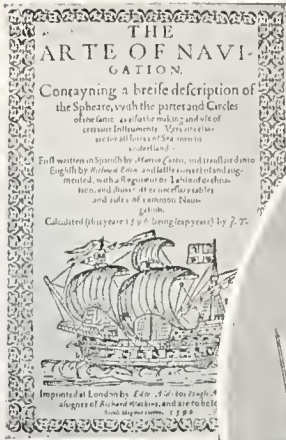 THE
ARTE OF NAVI-
GATION,
Contayning a breife description of
the Spheare, with the partes and Circles
of the same as also the making and vse of
certaine Instruments. Very
for all sortes of Sea men to
vnderstand.
First written in Spanish by Martin and translated into
English by Richard Eden and lastly and aug-
mented, with a Regiment or Table of declina-
tion, and necessary tables
and rules of common Naui-
gation.
Calculated (this yeare 1596 being leap yeare) by J. T.
Imprinted at London by Edw. for Hugh
assignes of Richard Watkins, and are to be
1596